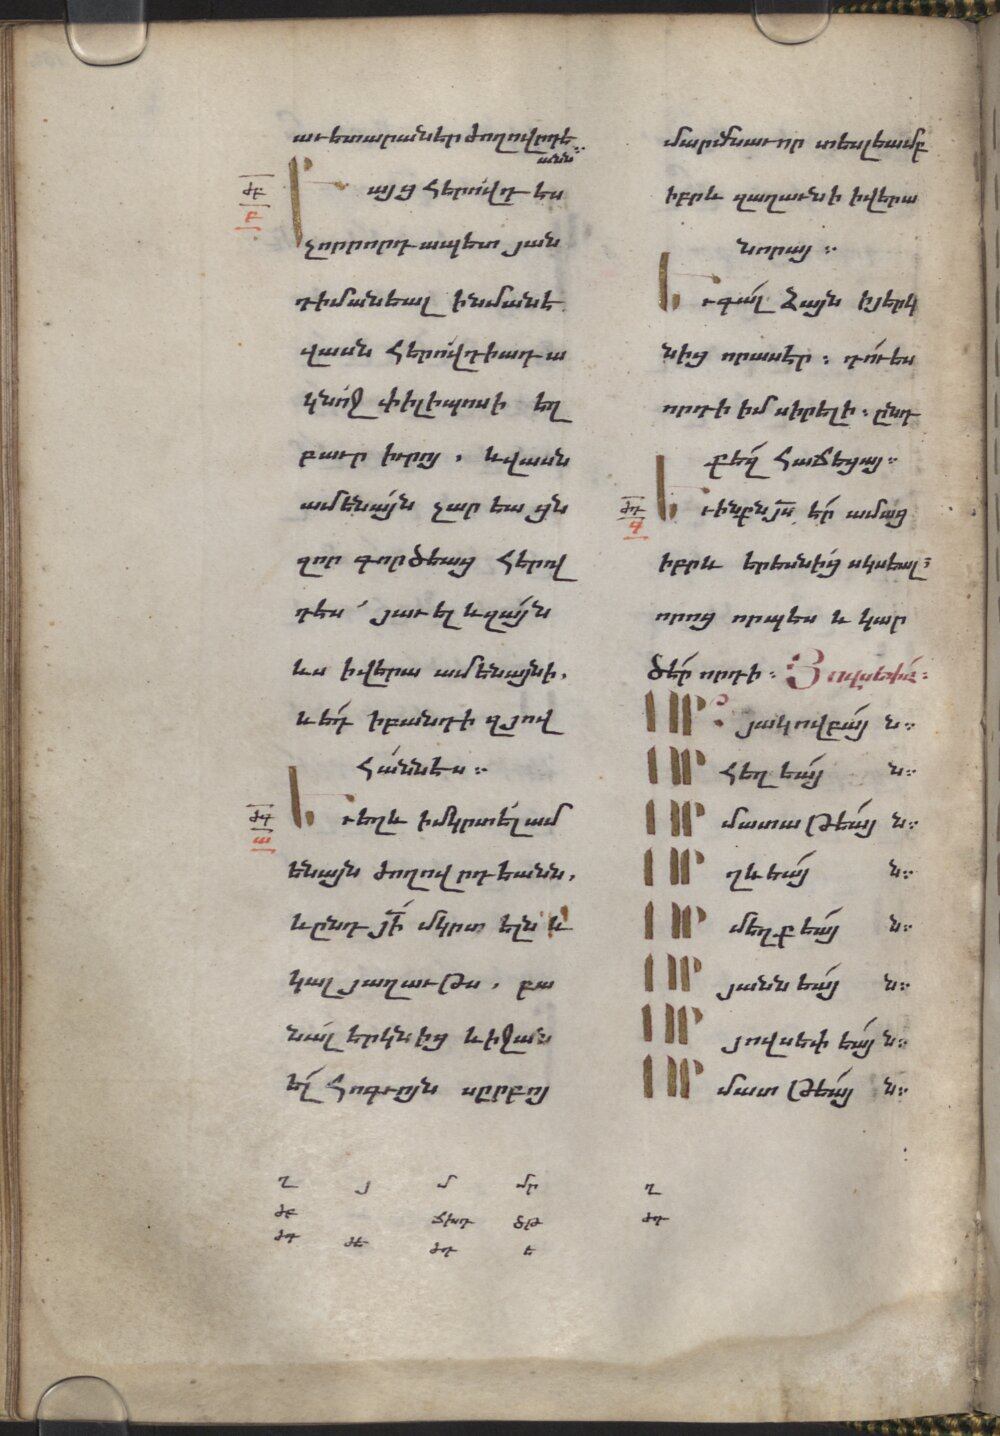 աւետարաներ ժողովրդե
անն։
ԺԲ
Բ
Իսկ
այց հերովդ ես
չորրորդապետ յան
դիմանեալ ինմանէ
վասն հերովդիադա
կնոջ փիլիպոսի եղ
բաւր իւրոյ, և վասն
ամենայն չարեացն
զոր գործեաց հերով
դես՝ յաւել և զայն
ևս իվերա ամենայնի,
և եդ իբանդի զյով
հաննես։
ԺԳ
Ա
Եւ եղև իմկրտել ամ
ենայն ժողովրդեանն,
և ընդ յի մկրտելն և
կալ յաղաւթս, բա
նալ երկնից և իջան
ել հոգւոյն սըրբոյ
մարմնաւոր տեսլեամբ
իբրև զաղաւնի իվերա
նորայ։
Եւ գալ ձայն իյերկ
նից որասեր։ դու ես
որդի իմ սիրելի։ ընդ
քեզ հաճեցայ։
ԺԴ
Գ
Եւ ինքն յս եր ամաց
իբրև երեսնից սկսեալ։
որոց որպես և կար
ծեր որդի։ Յովսեփև։
Որ յակովբայ ն։
Որ հեղեայ ն։
Որ մատաթեայ ն։
Որ ղևեայ ն։
Որ մեղքեայ ն։
Որ յաննեայ ն։
Որ յովսեփեայ ն։
Որ մատթեայ ն։
Ղ Յ Մ ՄՐ
ԺԲ ՃԽԴ ԾԹ
ԺԳ ԺԵ ԺԴ Ե
Ղ
ԺԴ